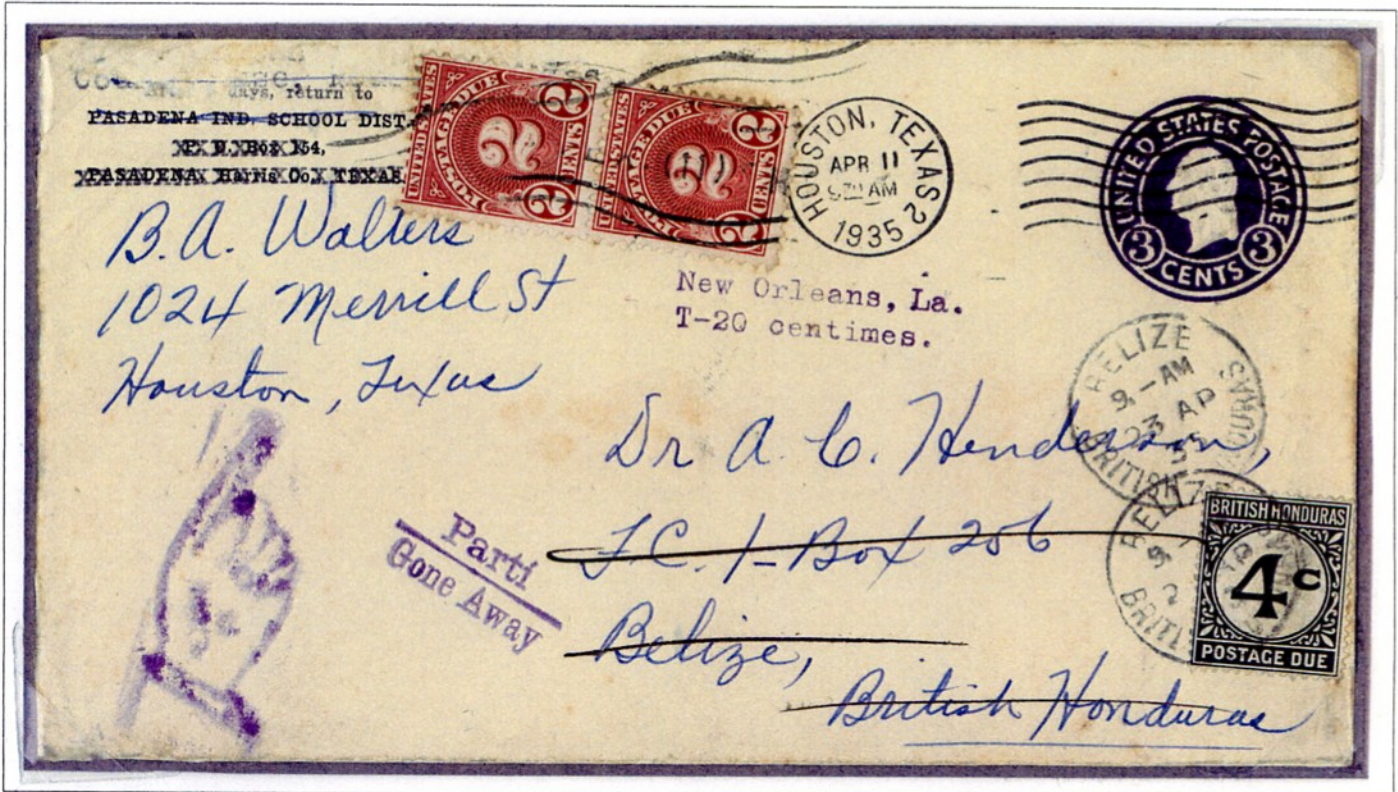 days, return to
PASADENA IND. SCHOOL DIST.
P. O. Box 154,
PASADENA Harris Co., TEXAS
B.A. Walters
1024 Merrill St
Houston, Texas
UNITED STATES
POSTAGE DUE
2
2
2
CENTS
UNITED STATES
POSTAGE DUE
2
2
2
CENTS
HOUSTON, TEXAS 2
APR 11
AM
1935
UNITED STATES POSTAGE
3 CENTS 3
New Orleans, La.
T-20 centimes.
BELIZE
9 - AM
23 AP
35
BRITISH HONDURAS
Dr A. C. Henderson,
Box 256
Belize,
British Honduras
Parti
Gone Away
BELIZE
BRITI
BRITISH HONDURAS
4c
POSTAGE DUE